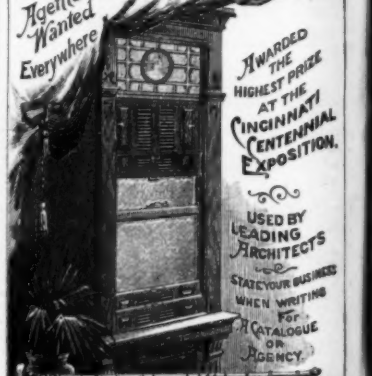 Agents
Wanted
Everywhere
AWARDED
THE
HIGHEST PRIZE
AT THE
CINCINNATI
CENTENNIAL
EXPOSITION.
USED BY
LEADING
ARCHITECTS
STATE YOUR BUSINESS
WHEN WRITING
FOR
A CATALOGUE
OR
AGENCY.